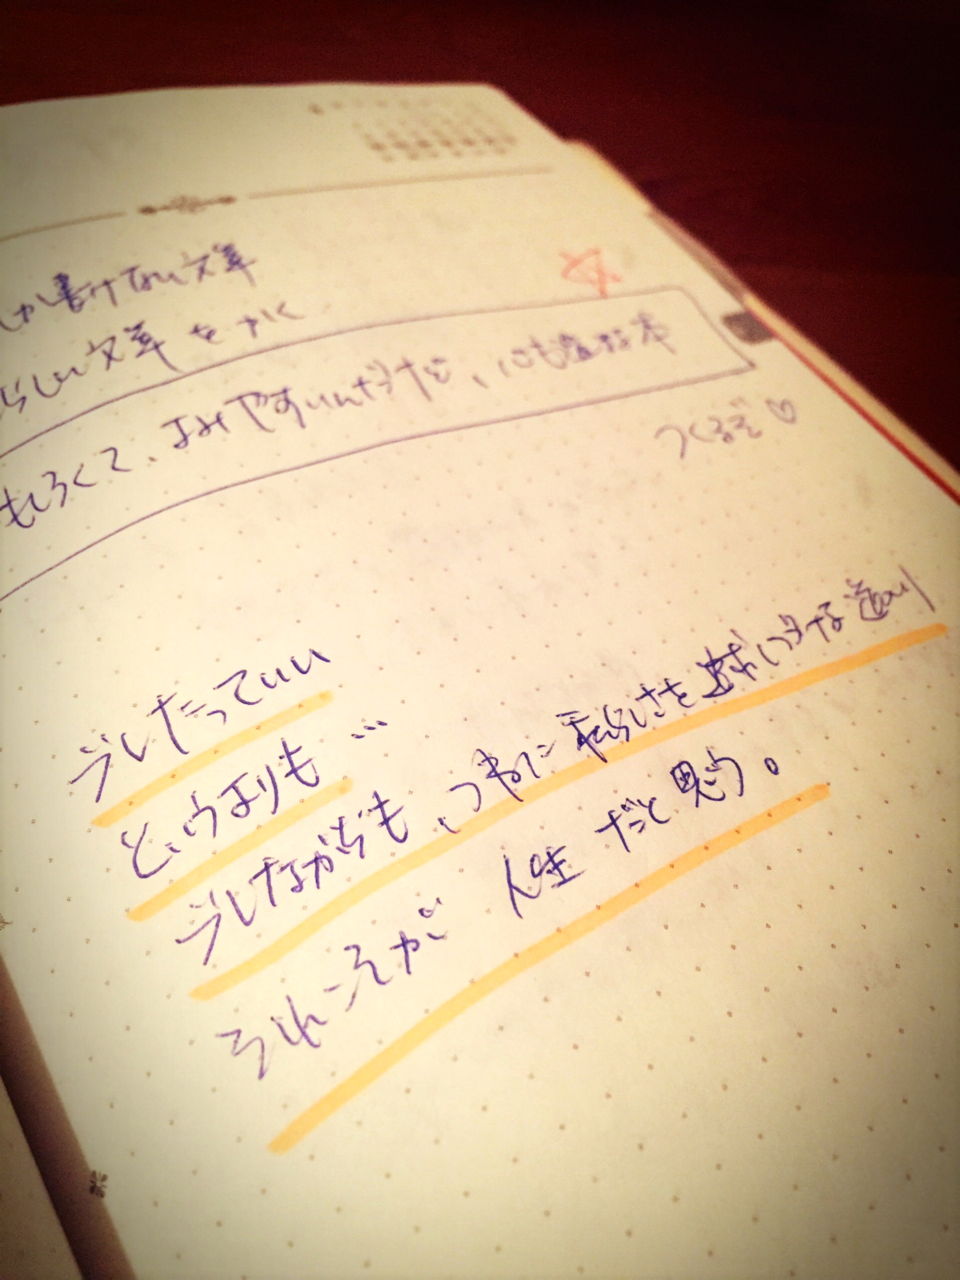 しか書けない文章
らしい文章をかく
もしろくて、よみやすいんだけど、
つくるぞ♡
少しだっていい
というよりも…
少しながらも、つねに私らしさを追求しつづける道のり
それこそが 人生だと思う。